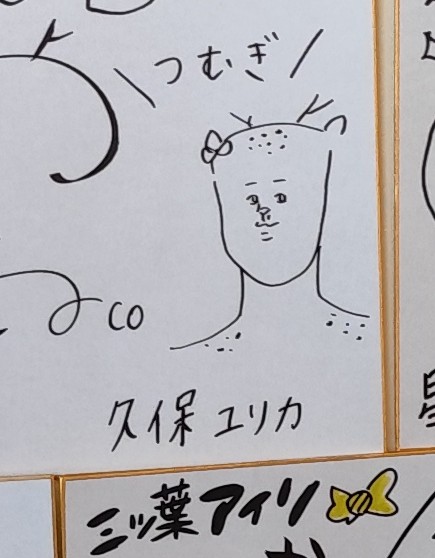 \つむぎ/
co
久保ユリカ
三ツ葉アイリ